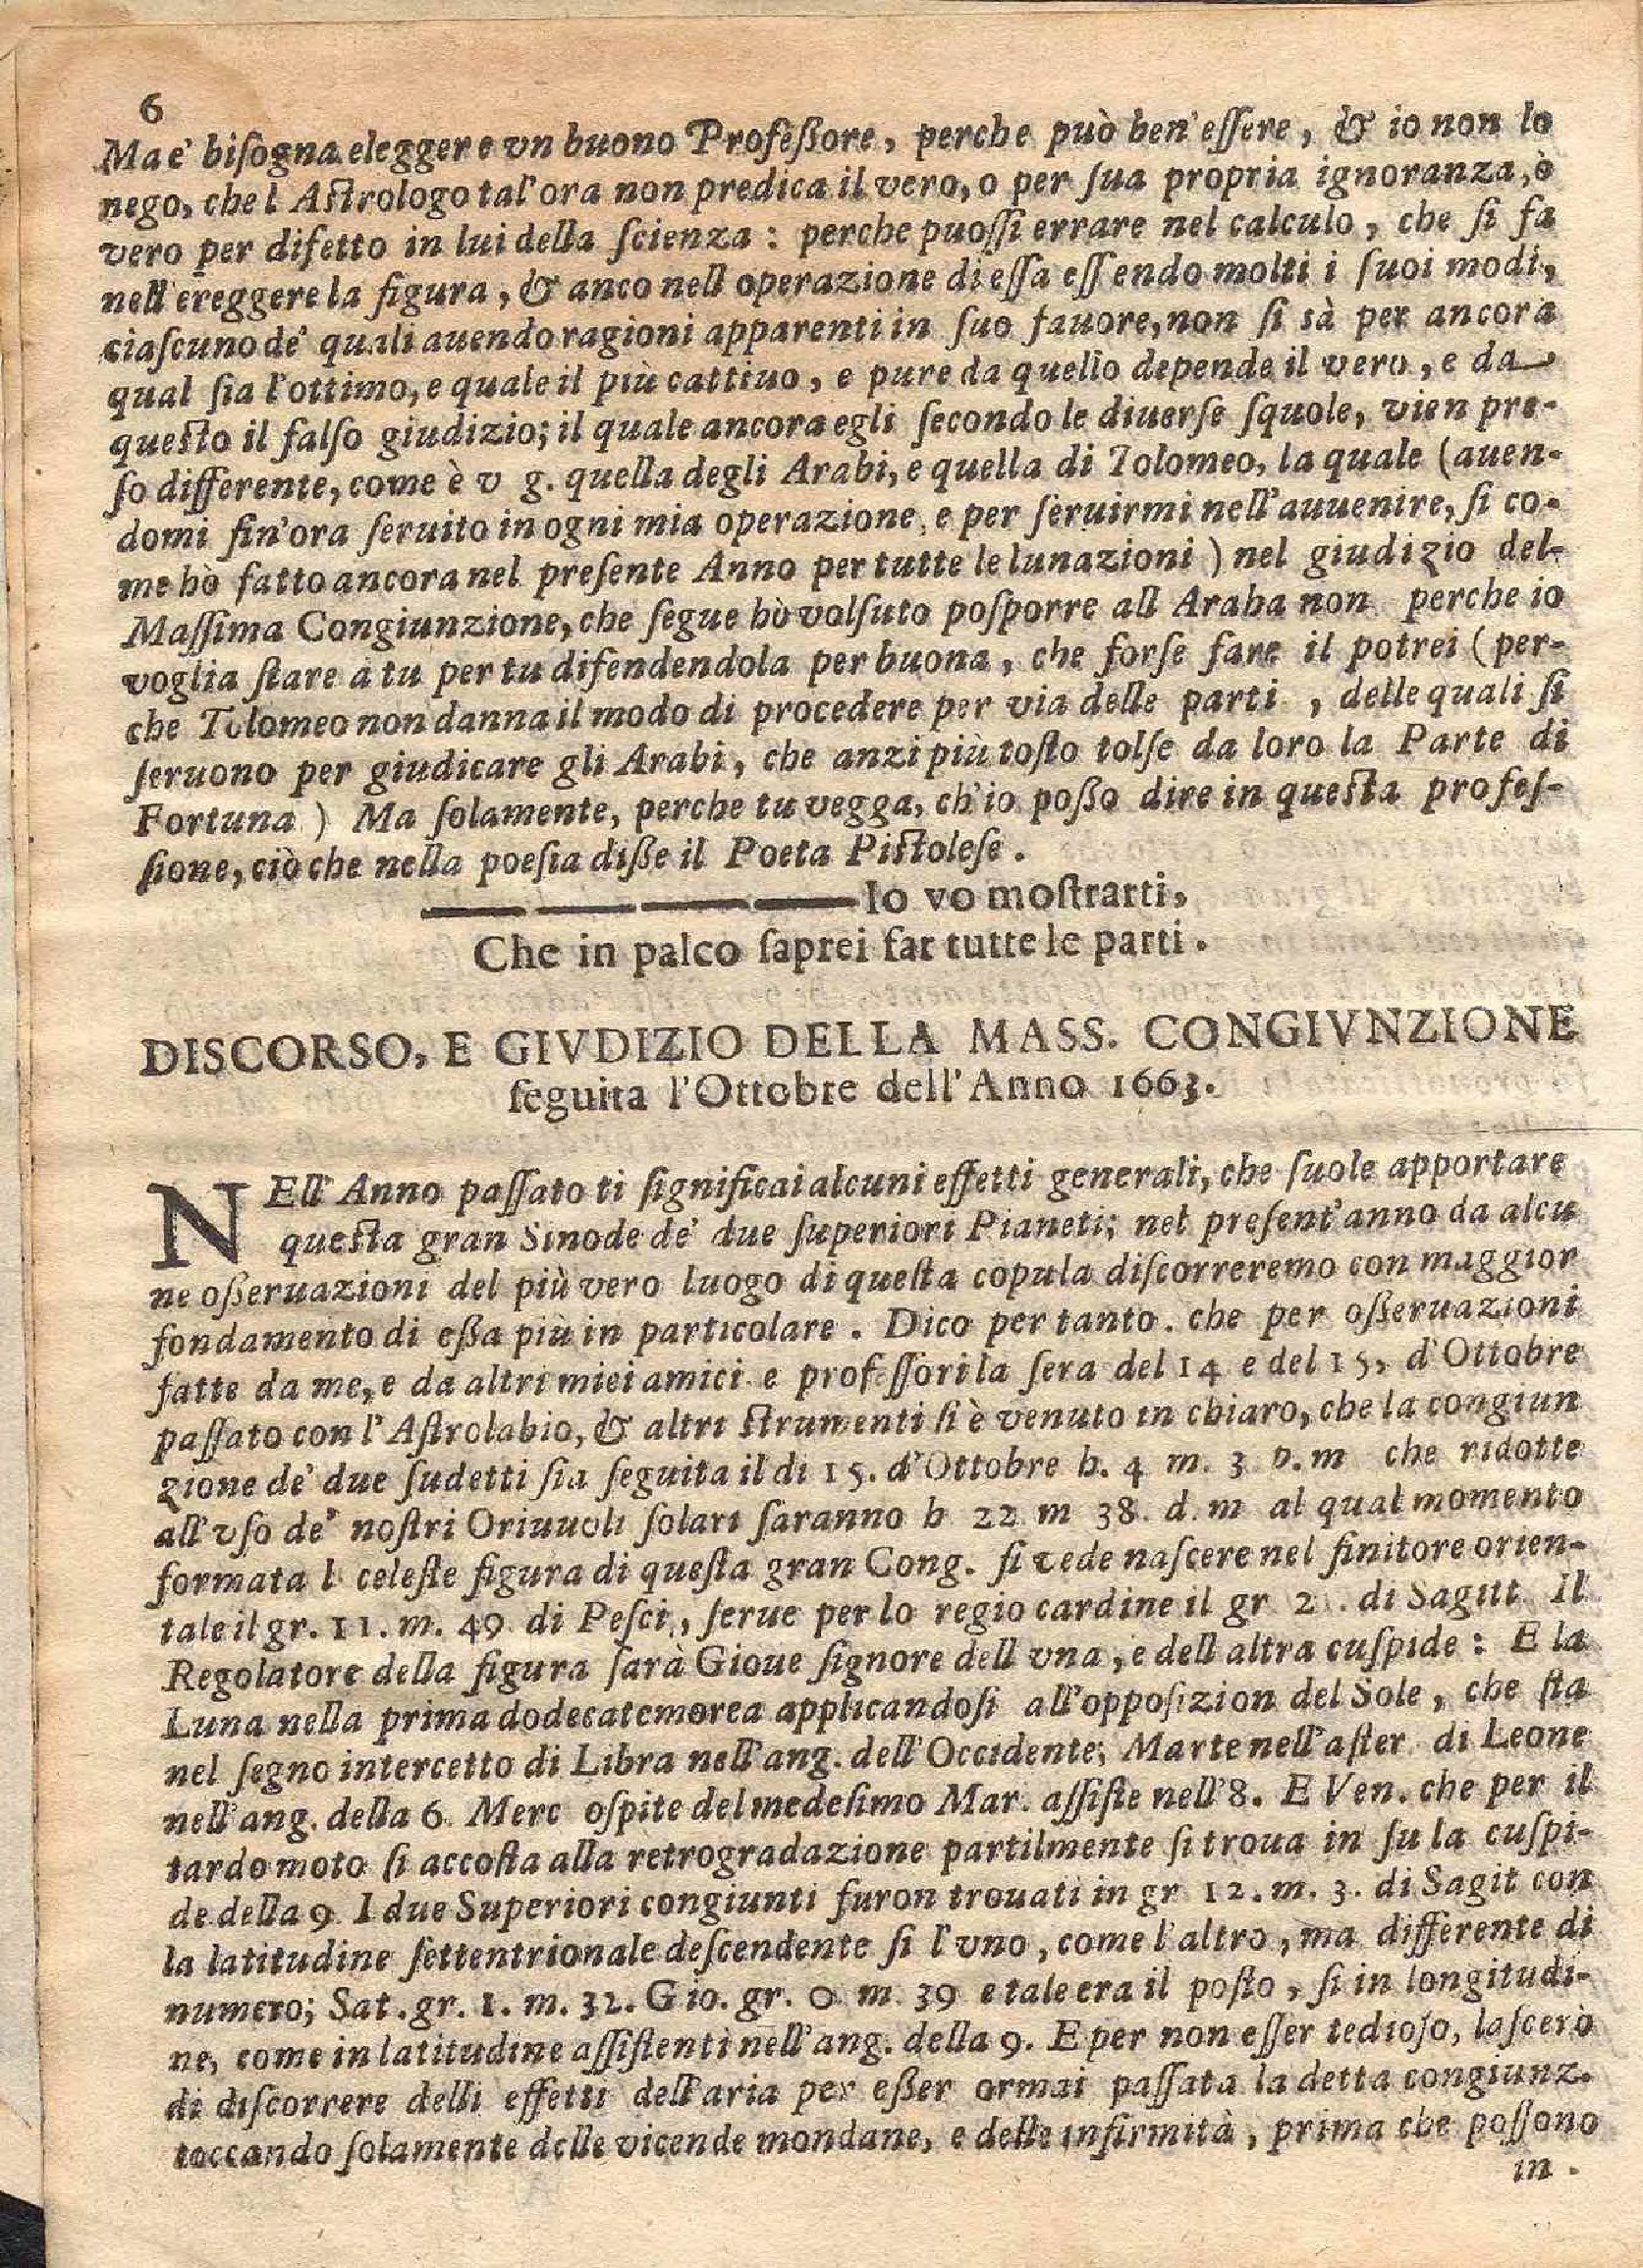 6
Ma e' bisogna eleggere vn buono Professore, perche può ben'essere, & io non lo
nego, che l Astrologo tal'ora non predica il vero, o per sua propria ignoranza, ò
vero per difetto in lui della scienza: perche puossi errare nel calculo, che si fa
nell'ereggere la figura, & anco nell operazione di essa essendo molti i suoi modi,
ciascuno de' quali auendo ragioni apparenti in suo fauore, non si sà per ancora
qual sia l'ottimo, e quale il più cattiuo, e pure da quello depende il vero, e da
questo il falso giudizio; il quale ancora egli secondo le diuerse squole, vien pre-
so differente, come è v g. quella degli Arabi, e quella di Tolomeo, la quale (auen-
domi fin'ora seruito in ogni mia operazione, e per seruirmi nell'auuenire, si co-
me hò fatto ancora nel presente Anno per tutte le lunazioni) nel giudizio del-
Massima Congiunzione, che segue hò volsuto posporre all Araba non perche io
voglia stare à tu per tu difendendola per buona, che forse fare il potrei (per-
che Tolomeo non danna il modo di procedere per via delle parti, delle quali si
seruono per giudicare gli Arabi, che anzi più tosto tolse da loro la Parte di
Fortuna) Ma solamente, perche tu vegga, ch'io posso dire in questa profes-
sione, ciò che nella poesia disse il Poeta Pistolese.
Io vo mostrarti,
Che in palco saprei far tutte le parti.
DISCORSO, E GIVDIZIO DELLA MASS. CONGIVNZIONE
seguita l'Ottobre dell'Anno 1663.
NEll' Anno passato ti significai alcuni effetti generali, che suole apportare
questa gran Sinode de' due superiori Pianeti; nel present'anno da alcu
ne osseruazioni del più vero luogo di questa copula discorreremo con maggior
fondamento di essa più in particolare. Dico per tanto. che per osseruazioni
fatte da me, e da altri miei amici e professori la sera del 14 e del 15, d'Ottobre
passato con l'Astrolabio, & altri strumenti si è venuto in chiaro, che la congiun
zione de' due sudetti sia seguita il di 15. d'Ottobre h. 4 m. 3 p.m che ridotte
all'vso de' nostri Oriuuoli solari saranno h 22 m 38. d. m al qual momento
formata l celeste figura di questa gran Cong. si vede nascere nel finitore orien-
tale il gr. 11. m. 49 di Pesci, serue per lo regio cardine il gr 2 . di Sagitt Il
Regolatore della figura sarà Gioue signore dell vna, e dell altra cuspide: E la
Luna nella prima dodecatemorea applicandosi all'opposizion del Sole, che sta
nel segno intercetto di Libra nell'ang. dell'Occidente; Marte nell'aster. di Leone
nell'ang. della 6 Merc ospite del medesimo Mar. assiste nell'8. E Ven. che per il
tardo moto si accosta alla retrogradazione partilmente si troua in su la cuspi-
de della 9 I due Superiori congiunti furon trouati in gr 12. m. 3. di Sagit con
la latitudine settentrionale descendente si l'vno, come l'altro, ma differente di
numero; Sat. gr. 1. m. 32. Gio. gr. 0 m. 39 e tale era il posto, si in longitudi-
ne, come in latitudine assistenti nell'ang. della 9. E per non esser tedioso, lascerò
di discorrere delli effetti dell'aria per esser ormai passata la detta congiunz.
toccando solamente delle vicende mondane, e delle infirmità, prima che possono
in .